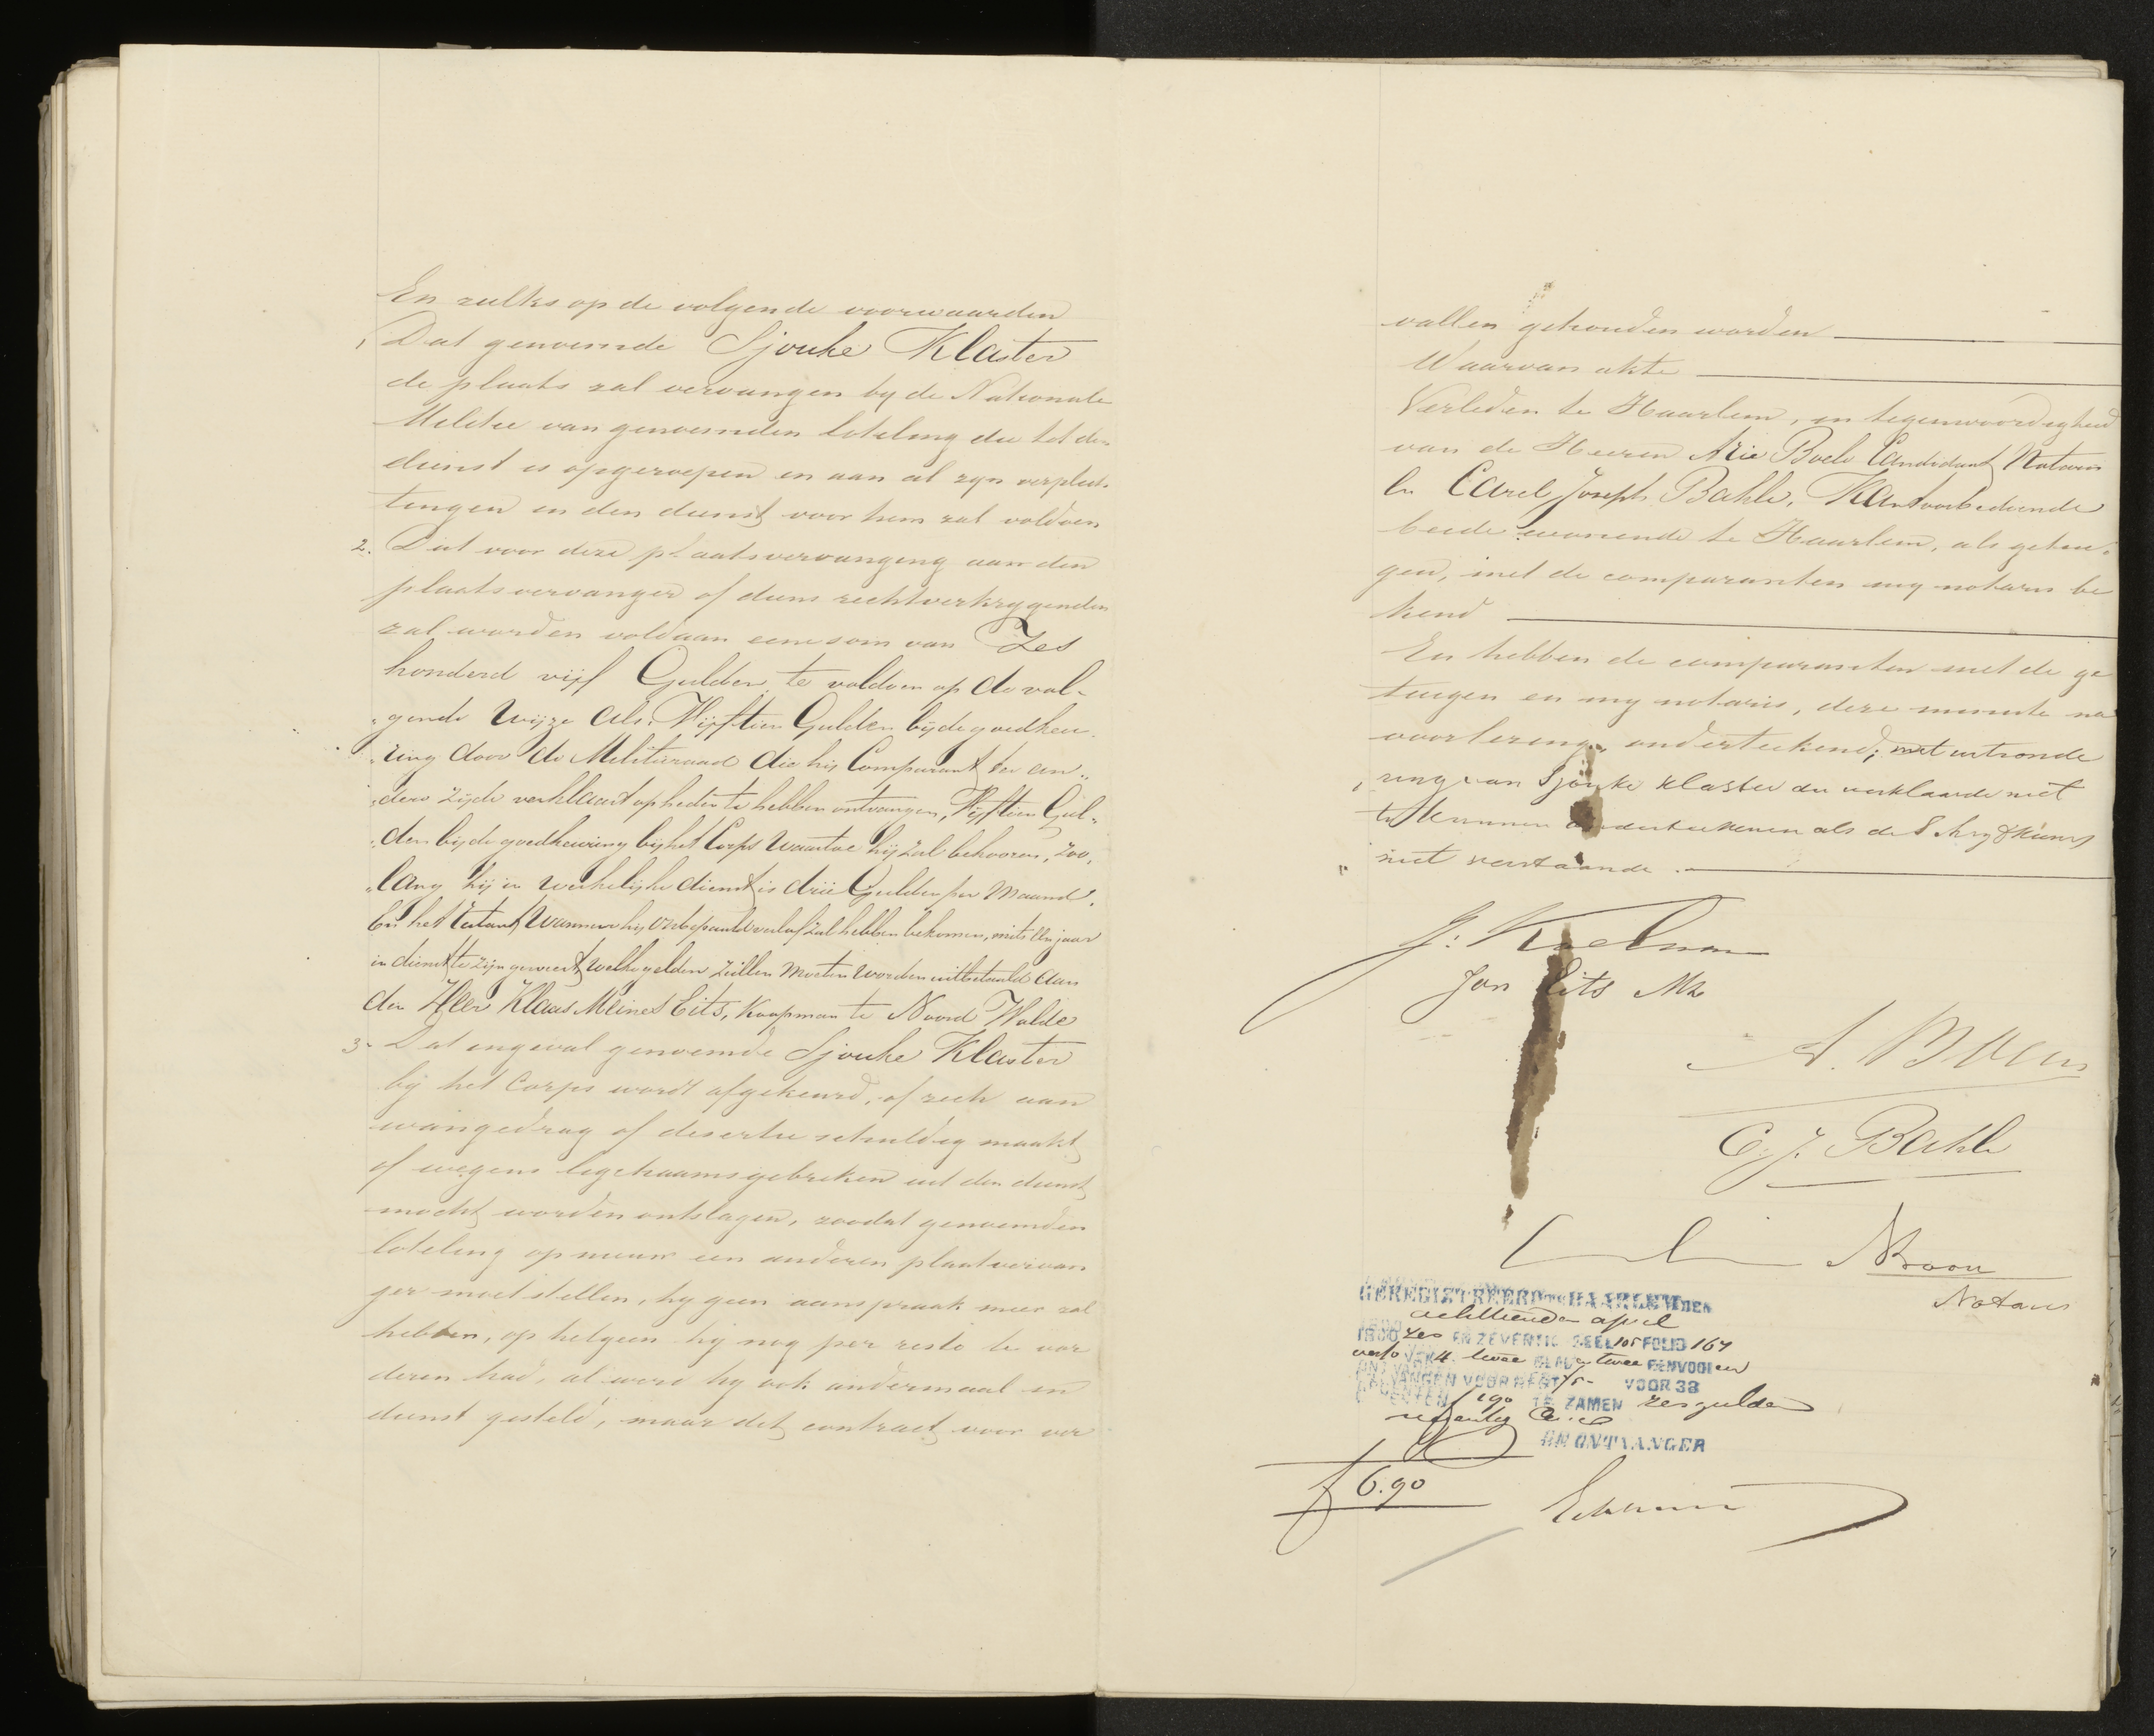 En zulks op de volgende voorwaarden
1, Dat genoemde Sjouke Klaster
de plaats zal vervangen by de Nationale
Militie van genoemden loteling die tot den
dienst is opgeroepen en aan al zyn verplich-
tingen in den dienst voor hem zal voldoen
2. Dat voor deze plaatsvervanging aan den
plaatsvervanger of diens rechtverkrygenden
zal worden voldaan eene som van Zes
honderd vijf Gulden te voldoen op de vol-
"gende Wijze als. Vijftien Gulden bij de goedkeu
"ring door de Militieraad die hij Comparant ter an"
"dere zijde verklaart op heden te hebben ontvangen, Vijftien Gul"
"den bij de goedkeuring bij het Corps waartoe hij zal behooren, zoo,
"lang hij in werkelijke dienst is drie Gulden per Maand,
En het restant Wanneer hij onbepaald verlof zal hebben bekomen, mits een jaar
in dienst te zijn geweest welke gelden zullen Moeten worden uitbetaald aan
den Heer Klaas Meines Eits, Koopman te Noord Wolde
3- Dat ingeval genoemde Sjouke Klaster
bij het Corps wordt afgekeurd, of zich aan
wangedrag of desertie schuldig maakt
of wegens ligchaamsgebreken uit den dienst
mocht worden ontslagen, zoodat genoemden
loteling op nieuw een anderen plaatvervan
ger moet stellen, hy geen aanspraak meer zal
hebben, op hetgeen hy nog per resto te vor
deren had, al werd hy ook andermaal in
dienst gesteld, maar dit contract voor ver
vallen gehouden worden
Waarvan akte
Verleden te Haarlem, in tegenwoordigheid
van de Heeren Arie Boele Candidaat Notaris
En Carel Joseph Bahle, Kantoorbediende
beide wonende te Haarlem, als getui-
gen, met de comparanten my notaris be
kend
En hebben de comparanten met de ge
tuigen en my notaris, deze minute na
voorlezing, onderteekend; met uitzonde
"ring van Sjouke Klaster die verklaarde niet
te kunnen onderteekenen als de Schryfkunst
" niet verstaande.
J: Koelman
Jan Eits Mz
A. Boele
C. J. Bahle
Notaris
GEREGISTREERD TE HAARLEM DEN
achttienden april
1800 zes EN ZEVENTIG DEEL 105 FOLIO 167
verso VAK 4. twee BLAD en twee RENVOOI en
ONTVANGEN VOOR REGT VOOR 38
CENTEN f 190 TE ZAMEN zes gulden
negentig Cs
DE ONTVANGER
f 6.90